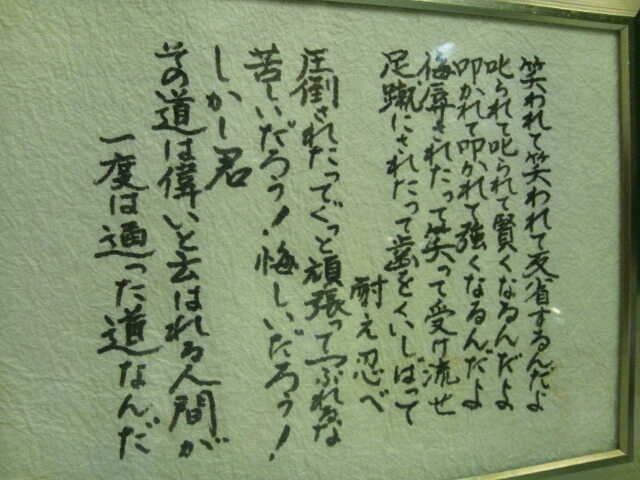 笑われて笑われて反省するんだよ
叱られて叱られて賢くなるんだよ
叩かれて叩かれて強くなるんだよ
侮辱されたって笑って受け流せ
足蹴にされたって歯をくいしばって
耐え忍べ
圧倒されたってぐっと頑張ってつぶれるな
苦しいだろう！悔しいだろう！
しかし君
その道は偉いと云はれる人間が
一度は通った道なんだ